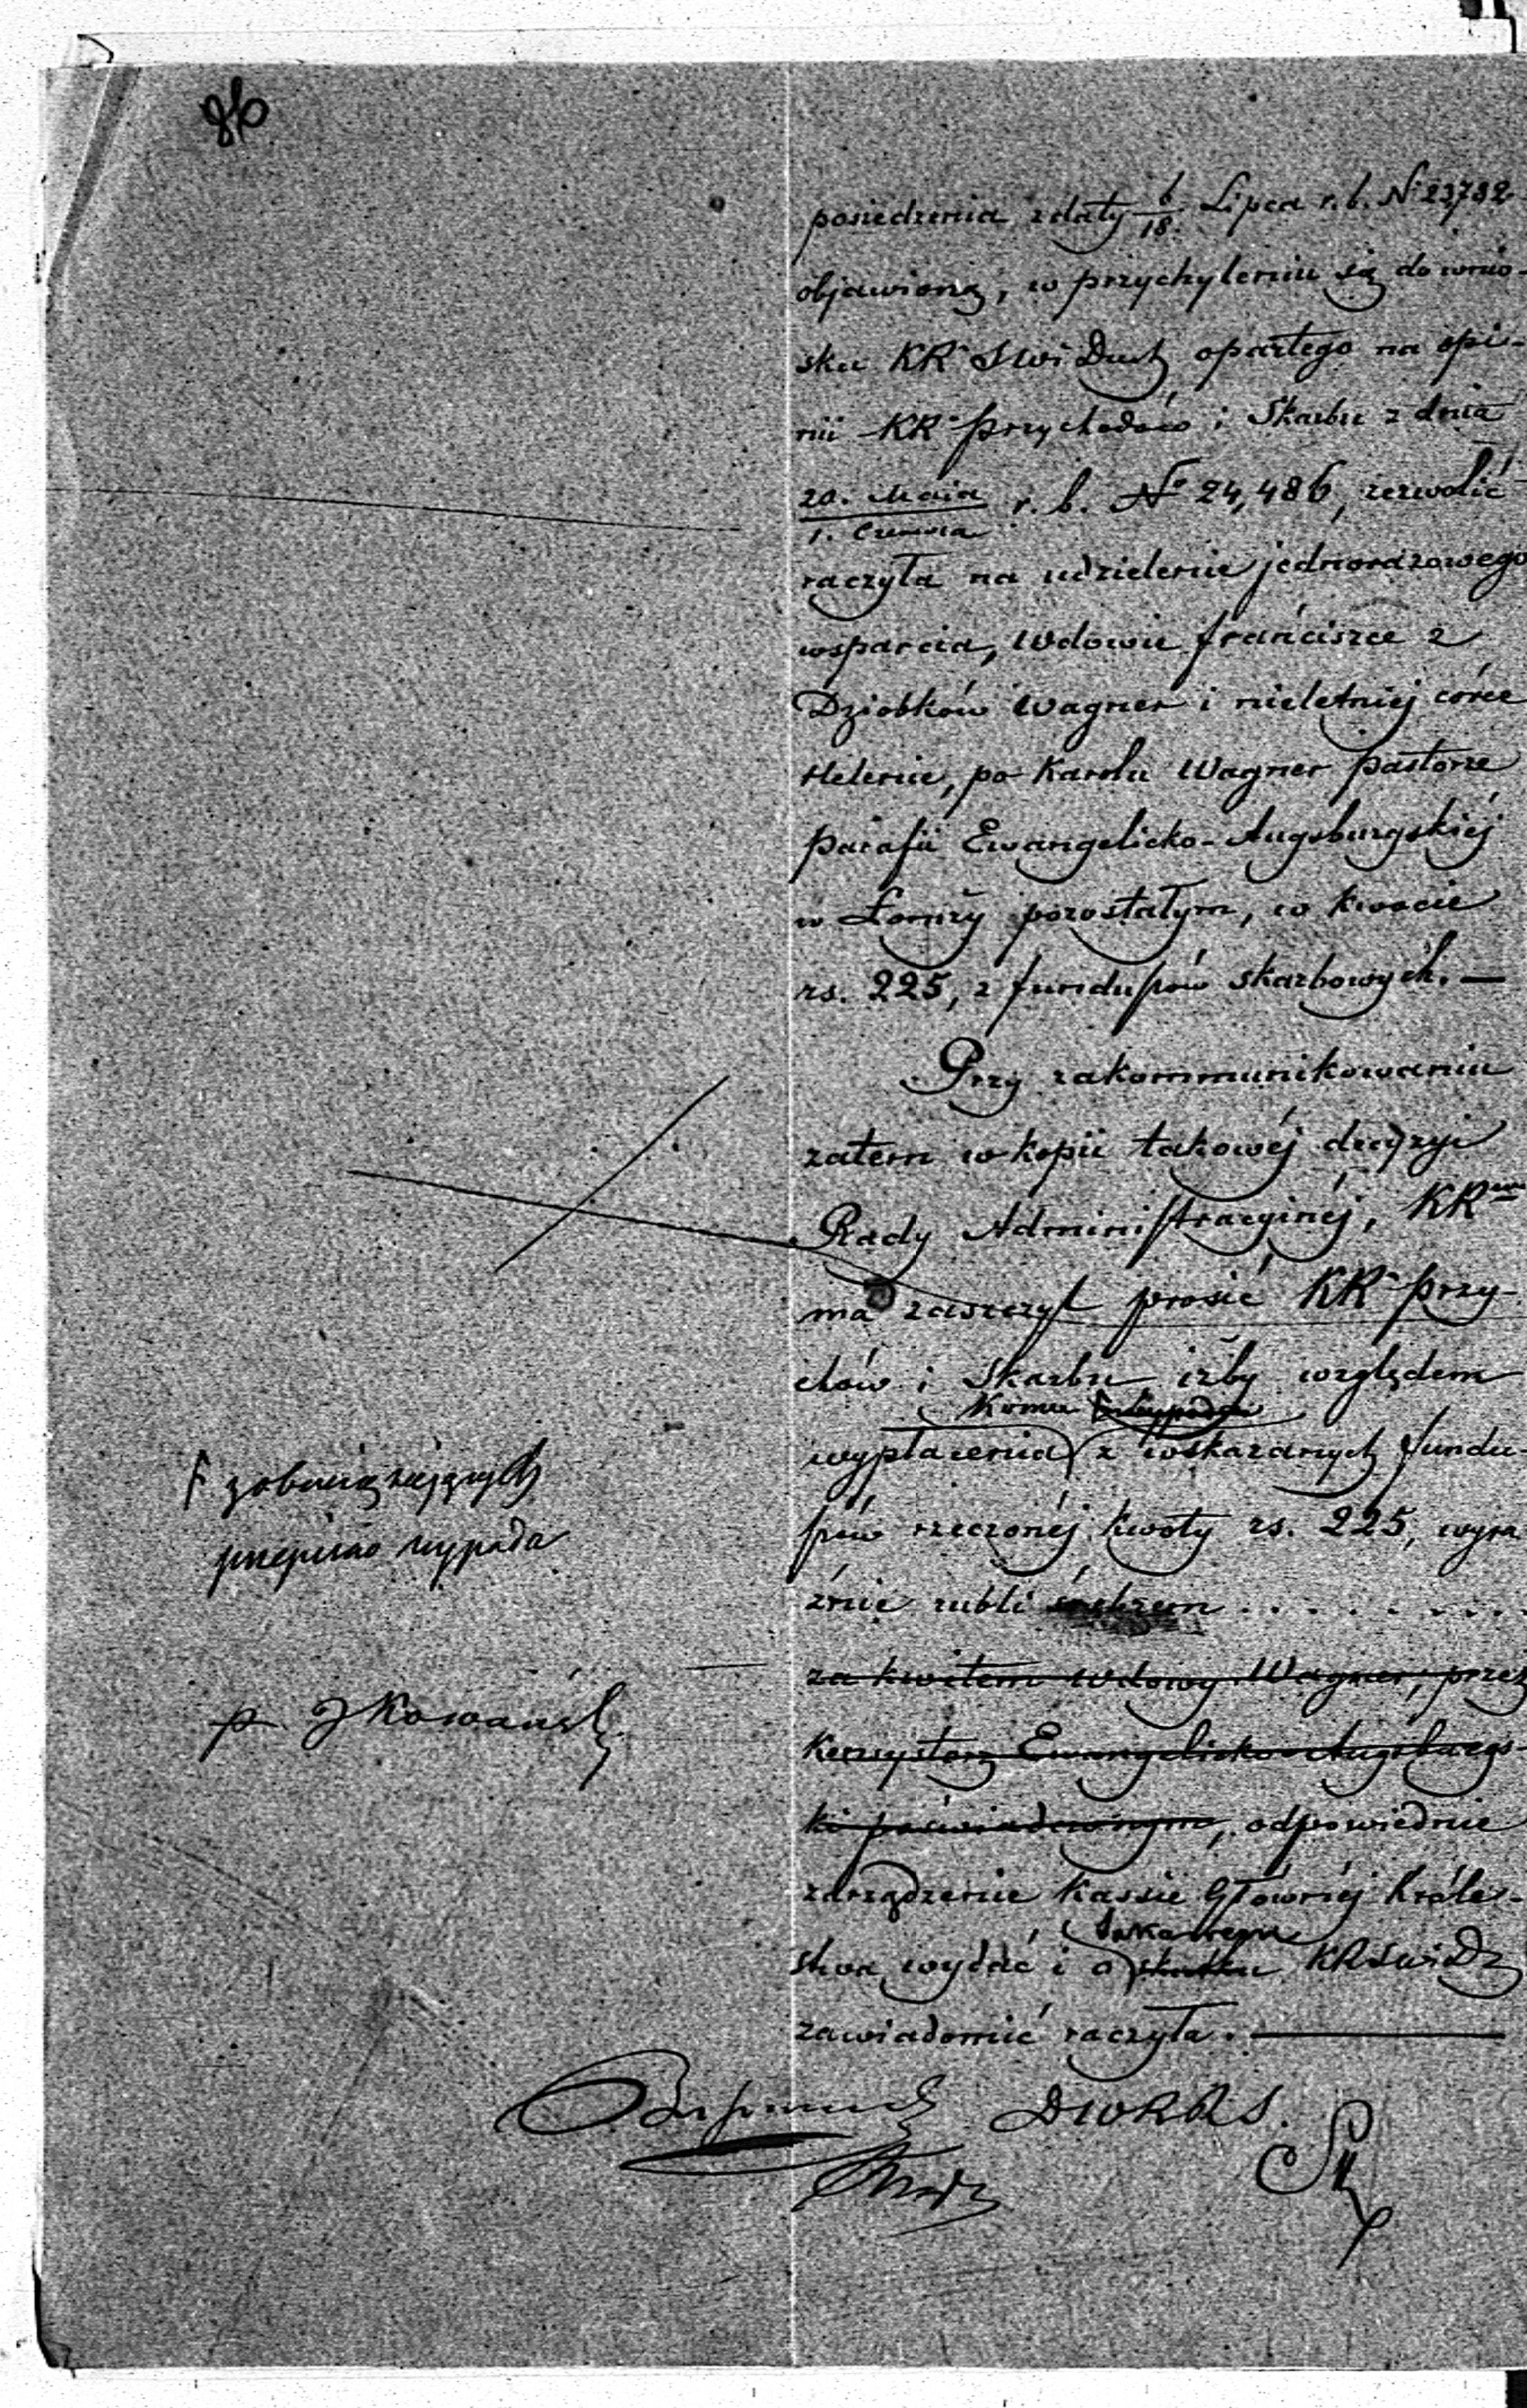 86
posiedzenia z daty 6/18. Lipca r. b. N° 23,732
objawioną, w przychyleniu się do wnio-
sku KR SWiDuch opartego na opi-
nii KR Przychodów i Skarbu z dnia
20. Maia / 1. Czerwca r. b. N° 24,486, zezwolić
raczyła na udzielenie jednorazowego
wsparcia, wdowie Franciszce z
Dziobków Wagner i nieletniej córce
Helenie, po Karolu Wagner Pastorze
Parafii Ewangelicko-Augsburgskiéj
w Łomży pozostałym, w kwocie
rs. 225, z funduszów skarbowych. —
Przy zakommunikowaniu
zatem w kopii takowéj decyzyi
Rady Administracyinéj, KR
ma zaszczyt prosić KR Przy-
chów i Skarbu iżby względem
Komu
wypłacenia z wskazanych fundu-
szów rzeczonéj kwoty rs. 225, wyra
źnie rubli srebrem . . . . . . . . .
za kwitem wdowy Wagner, przez
Konsystorz Ewangelicko-Augsburgs-
ki poświadczonym, odpowiednie
zarządzenie Kassie Głównéj Króle-
stwa wydać i o skutku KRSWiD
zawiadomić raczyła. —
F zobowiązujących
przepisów wypada
p. J Kowalsk
DWRRS.